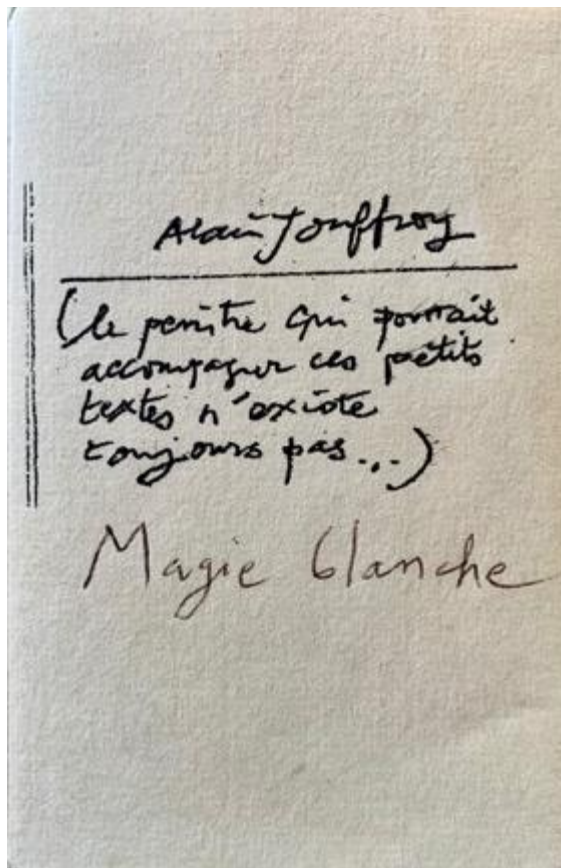 Alain Jouffroy
(le peintre qui pourrait
accompagner ces petits
textes n'existe
toujours pas...)
Magie blanche